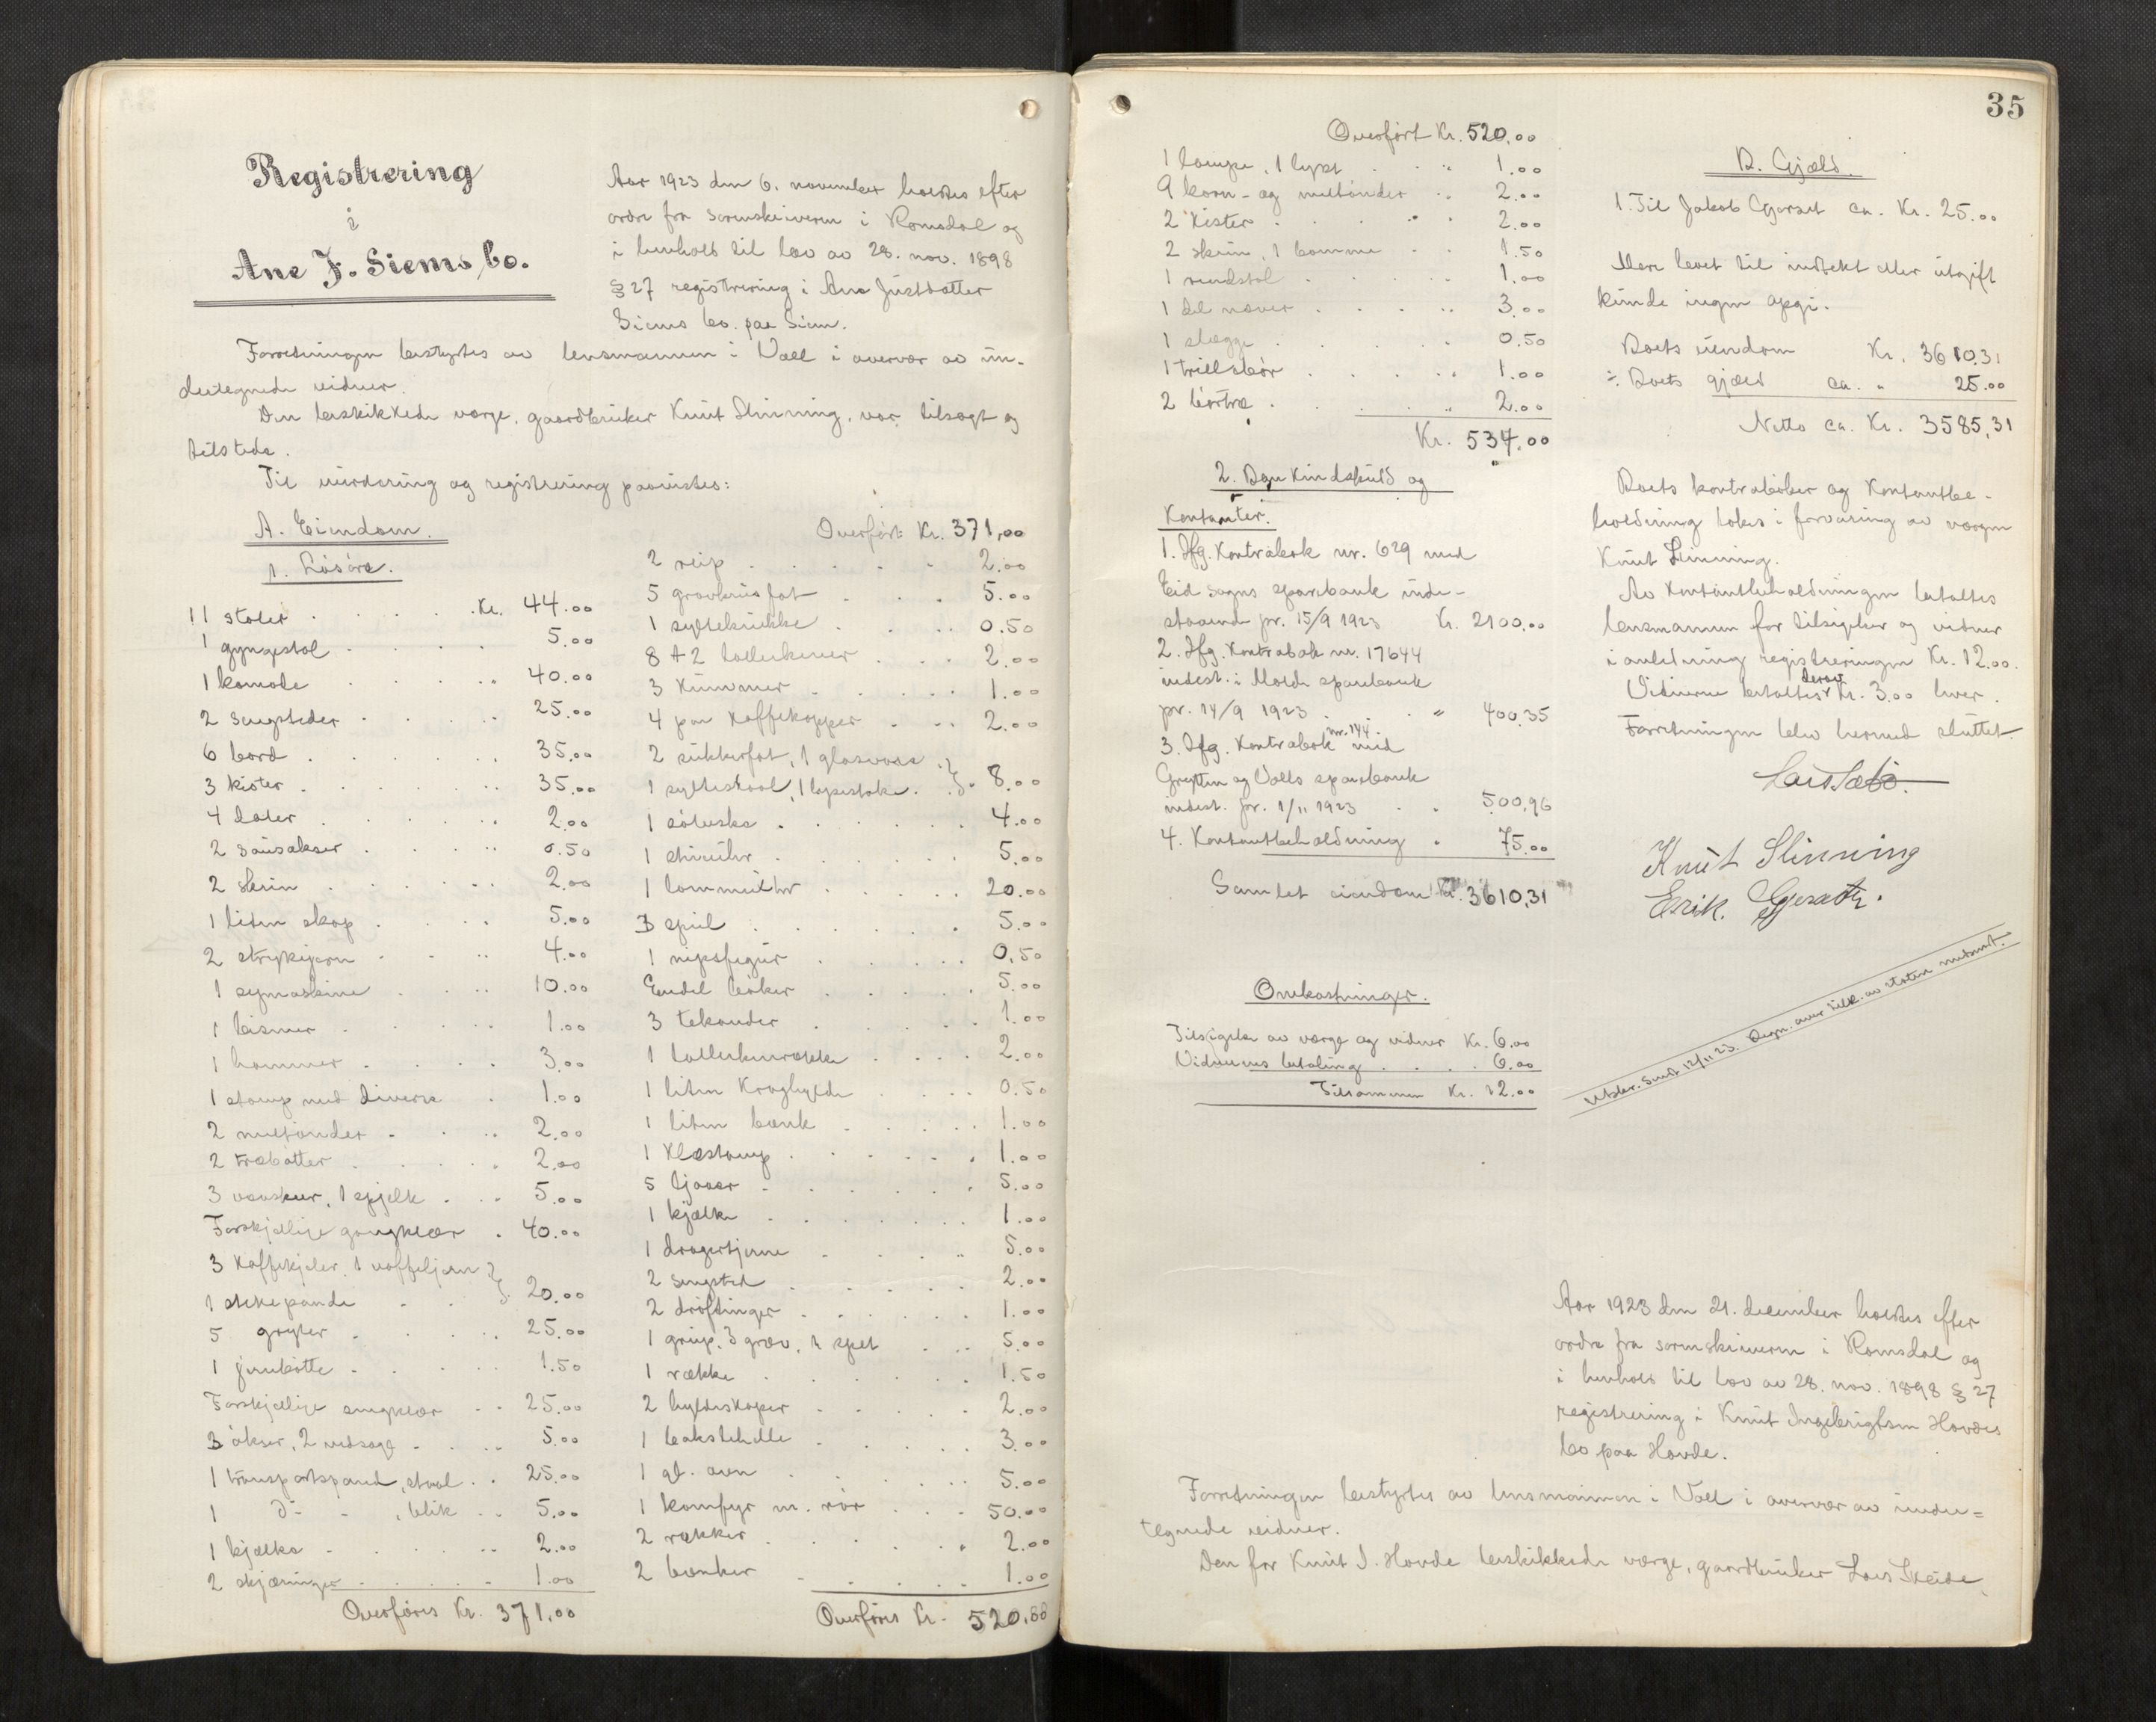 Registrering
i
Ane J. Siems bo.
Aar 1923 den 6. november holdtes efter
ordre fra sorenskriveren i Romsdal og
i henhold til lov av 28. nov. 1898
§ 27 registrering i Ane Justdatter
Siems bo paa Siem.
Forretningen bestyrtes av lensmannen i Voll i overvær av un-
dertegnede vidner.
Den beskikkede verge, gaardbruker Knut Slinning, var tilsagt og
tilstede.
Til vurdering og registrering paavistes:
A. Eiendom.
1. Løsøre.
11 stoler . . . . Kr. 44.00
1 gyngestol . . . . 5.00
1 komode . . . . " 40.00
2 sengsteder . . . . 25.00
6 bord . . . . " 35.00
3 kister . . . . " 35.00
4 daler . . . . " 2.00
2 sausakser . . . . " 0.50
2 skrin . . . . " 2.00
1 liten skap . . . . 5.00
2 strykejern . . " 4.00
1 symaskine . . " 10.00
1 bismer . . . . 1.00
1 hammer . . . . 3.00
1 stamp med diverse . 1.00
2 meltønder . . " 2.00
2 træbøtter . . . . 2.00
3 vavskeer, 1 spjelk . . " 5.00
Forskjellige gangklær . 40.00
3 kaffekjeler, 1 vaffeljern }
1 stekepande . . } " 20.00
5 gryter . . . . " 25.00
1 jernbøtte . . . . 1.50
Forskjellige sengklær . " 25.00
3 økser, 2 vedsage . . " 5.00
1 transportspand, staal . . 25.00
1 do - , blik . . " 5.00
1 kjælke . . . . " 2.00
2 skjæringer . . . . 1.00
Overføres Kr. 371.00
Overført Kr. 371.00
2 reip . . . . " 2.00
5 gravhusfat . . . 5.00
1 syltekrukke . . . 0.50
8 + 2 tallerkener . . . 2.00
3 kummer . . . . 1.00
4 par kaffekopper . . . 2.00
2 sukkerfat, 1 glasvase }
1 sylteskaal, 1 lysestake . } " 8.00
1 sølvske . . . . 4.00
1 stueuhr . . . . 5.00
1 lommeuhr . . . . 20.00
3 speil . . . . 5.00
1 nipsfigur . . . . 0.50
Endel bøker . . . . 5.00
3 tekander . . . . 1.00
1 tallerkenrække . . . 2.00
1 liten kraghylde . . . 0.50
1 liten bænk . . . . 1.00
1 klæstamp . . . . 1.00
5 ljaaer . . . . 5.00
1 kjælke . . . . 1.00
1 dragertjerne . . . " 5.00
2 sengsted . . . . 2.00
2 drøftinger . . . . 1.00
1 greip, 3 græv, 1 spet . . 5.00
1 række . . . . 1.50
2 hyldeskaper . . . . 2.00
1 bakstehelle . . . . 3.00
1 gl. ovn . . . . 5.00
1 komfyr m. rør . . . 50.00
2 rokker . . . . 2.00
2 bænker . . . . 1.00
Overføres Kr. 520.00
35
Overført Kr. 520.00
1 lampe, 1 lykt . . " 1.00
9 korn- og meltønder " 2.00
2 kister . . . " 2.00
2 skrin, 1 bomme . . 1.50
1 vendstol . . . . 1.00
1 del never . . . " 3.00
1 slegge . . . . 0.50
1 trillebør . . . " 1.00
2 børtræ . . . " 2.00
Kr. 534.00
2. Bankindskud og
Kontanter.
1. Ifg. Kontrabok nr. 629 med
Eid sogns sparebank inde-
staaende pr. 15/9 1923 Kr. 2100.00
2. Ifg. Kontrabok nr. 17644
indest. i Molde sparebank
pr. 14/9 1923 . . " 400.35
3. Ifg. Kontrabok nr. 144 med
Grytten og Volls sparebank
indest. pr. 1/11 1923 . . 500.96
4. Kontantbeholdning " 75.00
Samlet eiendom Kr. 3610,31
Omkostninger.
Tilsigelse av verge og vidner Kr. 6.00
Vidnernes betaling . . . . 6.00
Tilsammen Kr. 12.00
B. Gjæld.
1. Til Jakob Gjerset ca. Kr. 25.00
Mere boet til indtekt eller utgift
kunde ingen opgi.
Boets eiendom Kr. 3610.31
÷ Boets gjæld ca. " 25.00
Netto ca. Kr. 3585,31
Boets kontrabøker og kontantbe-
holdning tokes i forvaring av vergen
Knut Slinning.
Av kontantbeholdningen betaltes
lensmannen for tilsigelser og vidner
i anledning registreringen Kr. 12.00.
Vidnerne betaltes derav Kr. 3.00 hver.
Forretningen blev hermed sluttet
Lars Sæbø.
Knut Slinning
Erik Gjerset
Utskr. sendt 12/11 23. Regn. over tilk. av staten medsendt.
Aar 1923 den 21. december holdtes efter
ordre fra sorenskriveren i Romsdal og
i henhold til lov av 28. nov. 1898 § 27
registrering i Knut Ingebrigtsen Hovdes
bo paa Hovde.
Forretningen bestyrtes av lensmannen i Voll i overvær av under=
tegnede vidner.
Den for Knut I. Hovde beskikkede verge, gaardbruker Lars Skeide,